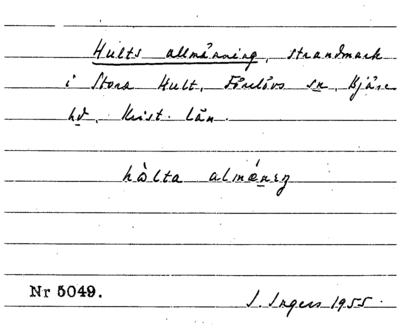 Hults allmänning, strandmark
i Stora Hult, Förslövs sn, Bjäre
hd, Krist. län.
hàlta almǽnɪŋ
Nr 5049.
I. Ingers 1955.